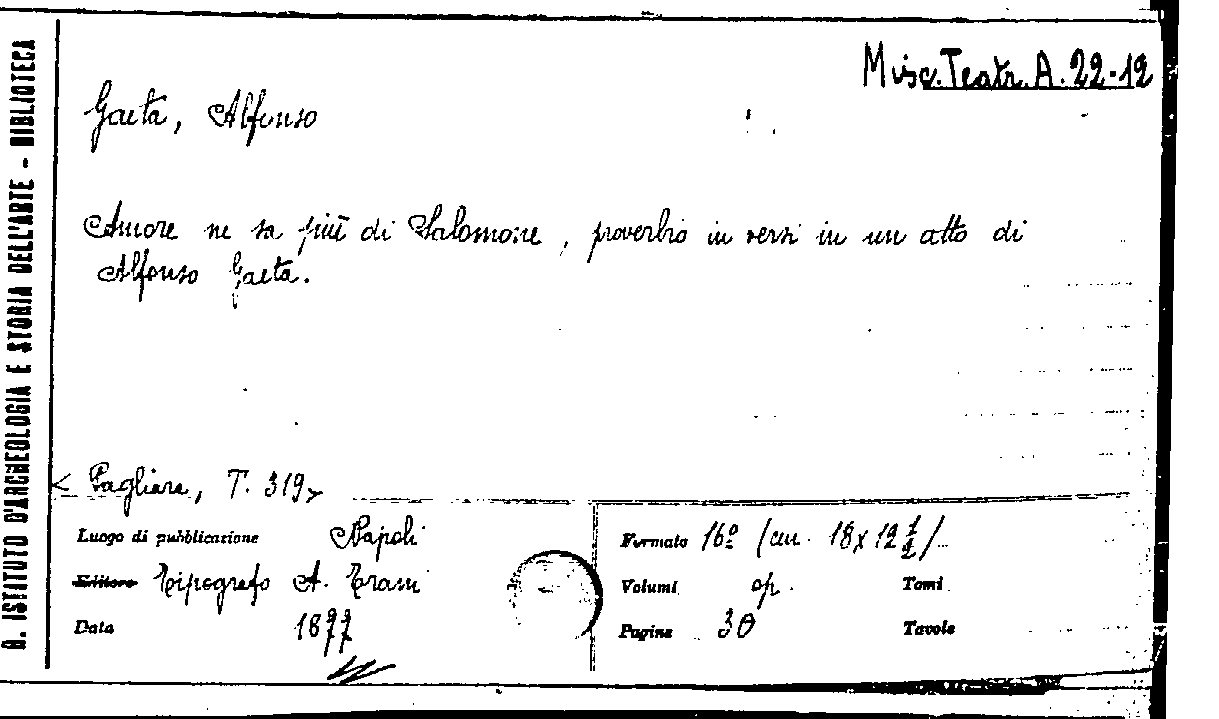 R. ISTITUTO D'ARCHEOLOGIA E STORIA DELL'ARTE - BIBLIOTECA
Misc. Teatr. A. 22-12
Gaeta, Alfonso
Amore ne sa più di Salomone, proverbio in versi in un atto di
Alfonso Gaeta.
< Pagliara, T. 319 >
Luogo di pubblicazione Napoli
Editore Tipografo A. Trani
Data 1877
Formato 16º (cm. 18x12 1/2)
Volumi op.
Tomi
Pagine 30
Tavole